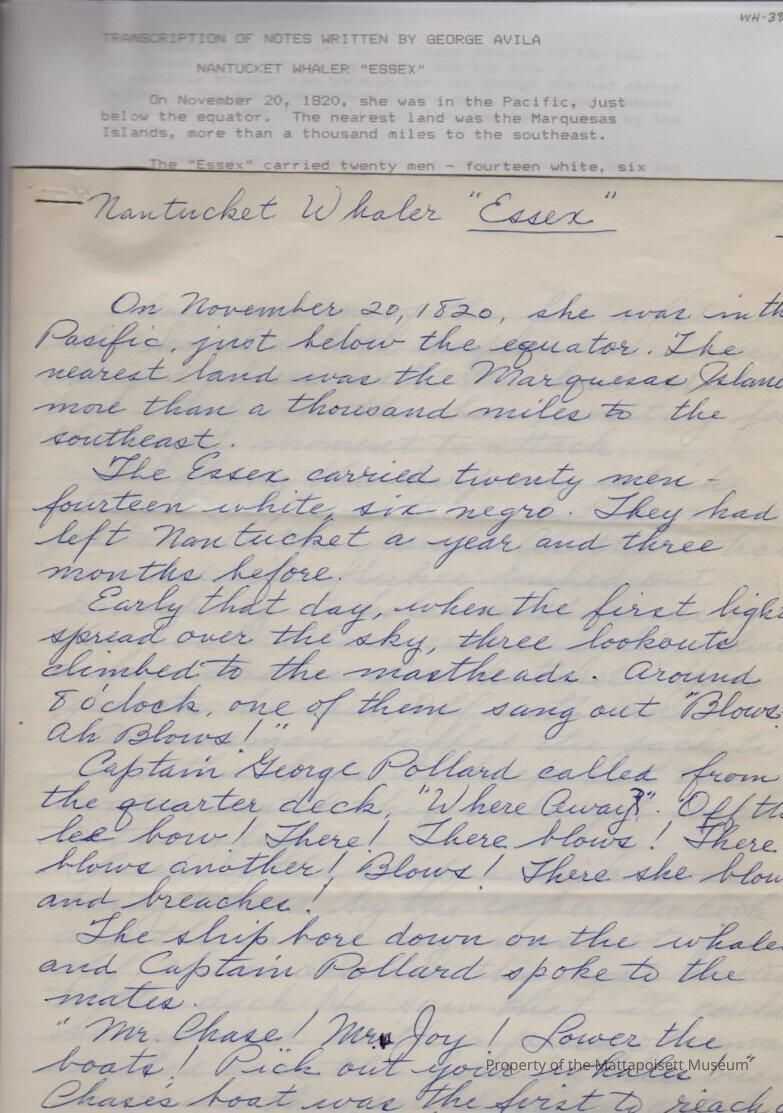 WH-39
TRANSCRIPTION OF NOTES WRITTEN BY GEORGE AVILA
NANTUCKET WHALER "ESSEX"
On November 20, 1820, she was in the Pacific, just
below the equator. The nearest land was the Marquesas
Islands, more than a thousand miles to the southeast.
The "Essex" carried twenty men - fourteen white, six
Nantucket Whaler "Essex"
On November 20, 1820, she was in th
Pacific, just below the equator. The
nearest land was the Marquesas Island
more than a thousand miles to the
southeast.
The Essex carried twenty men -
fourteen white, six negro. They had
left Nantucket a year and three
months before.
Early that day, when the first light
spread over the sky, three lookouts
climbed to the mastheads. Around
8 o'clock, one of them sang out "Blows
Ah Blows!"
Captain George Pollard called from
the quarter deck, "Where Away?". Off th
lee bow! There! There blows! There
blows another! Blows! There she blow
and breaches!
The ship bore down on the whale
and Captain Pollard spoke to the
mates.
"Mr. Chase! Mr. Joy! Lower the
boats! Pick out your whale!"
Chase's boat was the first to reach
Property of the Mattapoisett Museum